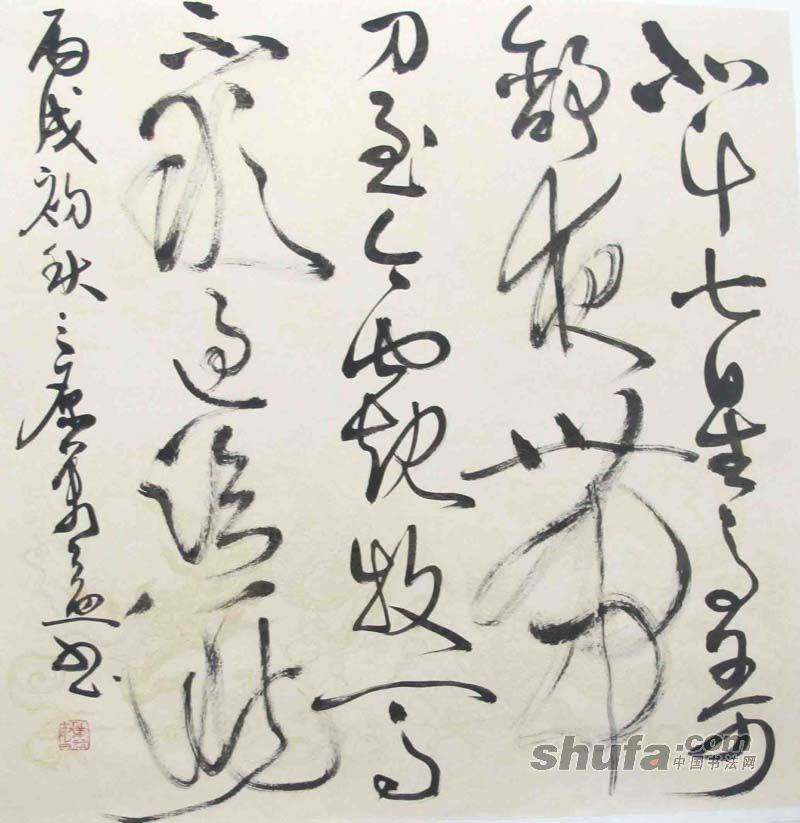 北斗七星高哥
舒夜帶
刀至今窺牧馬
不敢過臨洮
丙戌初秋三原書
shufa.com
中国书法网